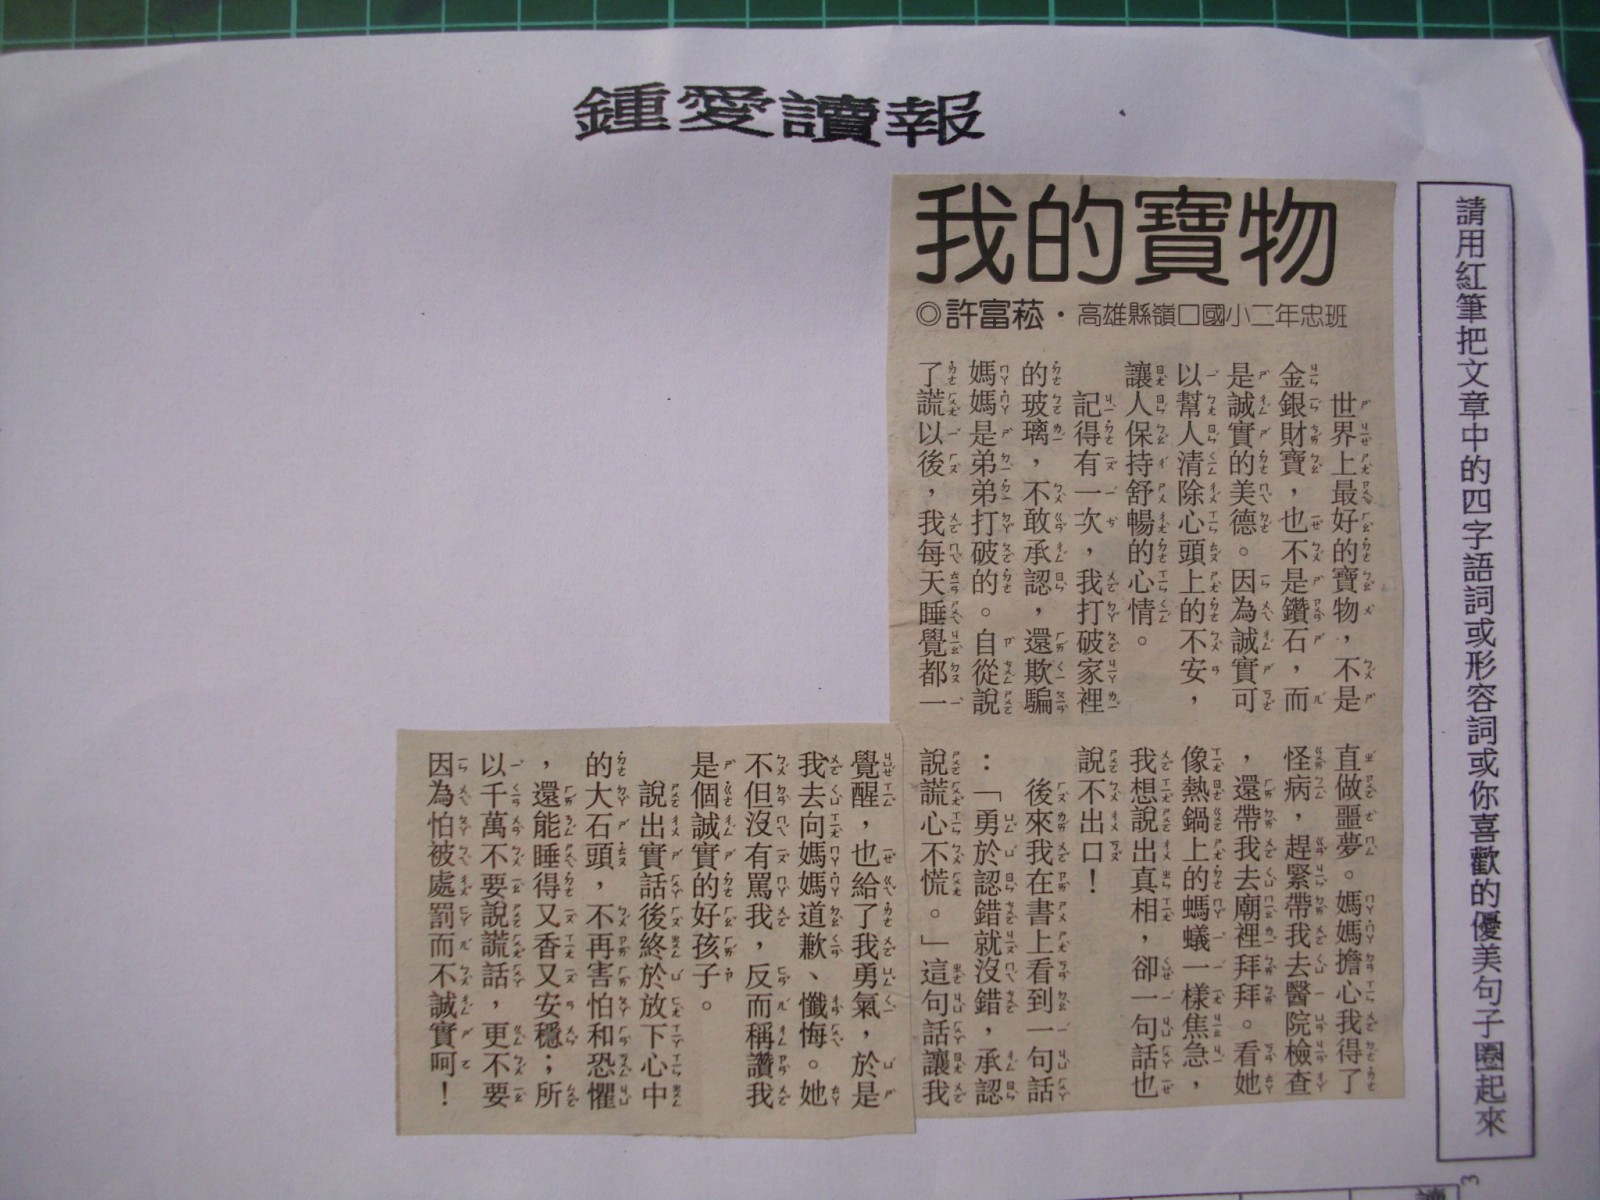 鍾愛讀報
請用紅筆把文章中的四字語詞或形容詞或你喜歡的優美句子圈起來
我的寶物
◎許富菘・高雄縣嶺口國小二年忠班
世界上最好的寶物，不是
金銀財寶，也不是鑽石，而
是誠實的美德。因為誠實可
以幫人清除心頭上的不安，
讓人保持舒暢的心情。
記得有一次，我打破家裡
的玻璃，不敢承認，還欺騙
媽媽是弟弟打破的。自從說
了謊以後，我每天睡覺都一
直做噩夢。媽媽擔心我得了
怪病，趕緊帶我去醫院檢查
，還帶我去廟裡拜拜。看她
像熱鍋上的螞蟻一樣焦急，
我想說出真相，卻一句話也
說不出口！
後來我在書上看到一句話
：「勇於認錯就沒錯，承認
說謊心不慌。」這句話讓我
覺醒，也給了我勇氣，於是
我去向媽媽道歉、懺悔。她
不但沒有罵我，反而稱讚我
是個誠實的好孩子。
說出實話後終於放下心中
的大石頭，不再害怕和恐懼
，還能睡得又香又安穩；所
以千萬不要說謊話，更不要
因為怕被處罰而不誠實呵！
3